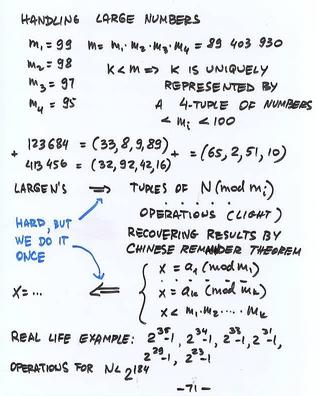 HANDLING LARGE NUMBERS
m₁ = 99 m = m₁·m₂·m₃·m₄ = 89 403 930
m₂ = 98 K < m ⟹ K IS UNIQUELY
m₃ = 97 REPRESENTED BY
m₄ = 95 A 4-TUPLE OF NUMBERS
< mᵢ < 100
+ 123684 = (33,8,9,89) + = (65,2,51,10)
413456 = (32,92,42,16)
LARGE N'S ⟹ TUPLES OF N (mod mᵢ)
OPERATIONS (LIGHT)
HARD, BUT
WE DO IT
ONCE
RECOVERING RESULTS BY
CHINESE REMAINDER THEOREM
x = a₁ (mod m₁)
X = ... ⟸ x = aₖ (mod mₖ)
x < m₁·m₂· .... mₖ
REAL LIFE EXAMPLE: 2³⁵-1, 2³⁴-1, 2³³-1, 2³¹-1,
2²⁹-1, 2²³-1
OPERATIONS FOR N < 2¹⁸⁴
-71-